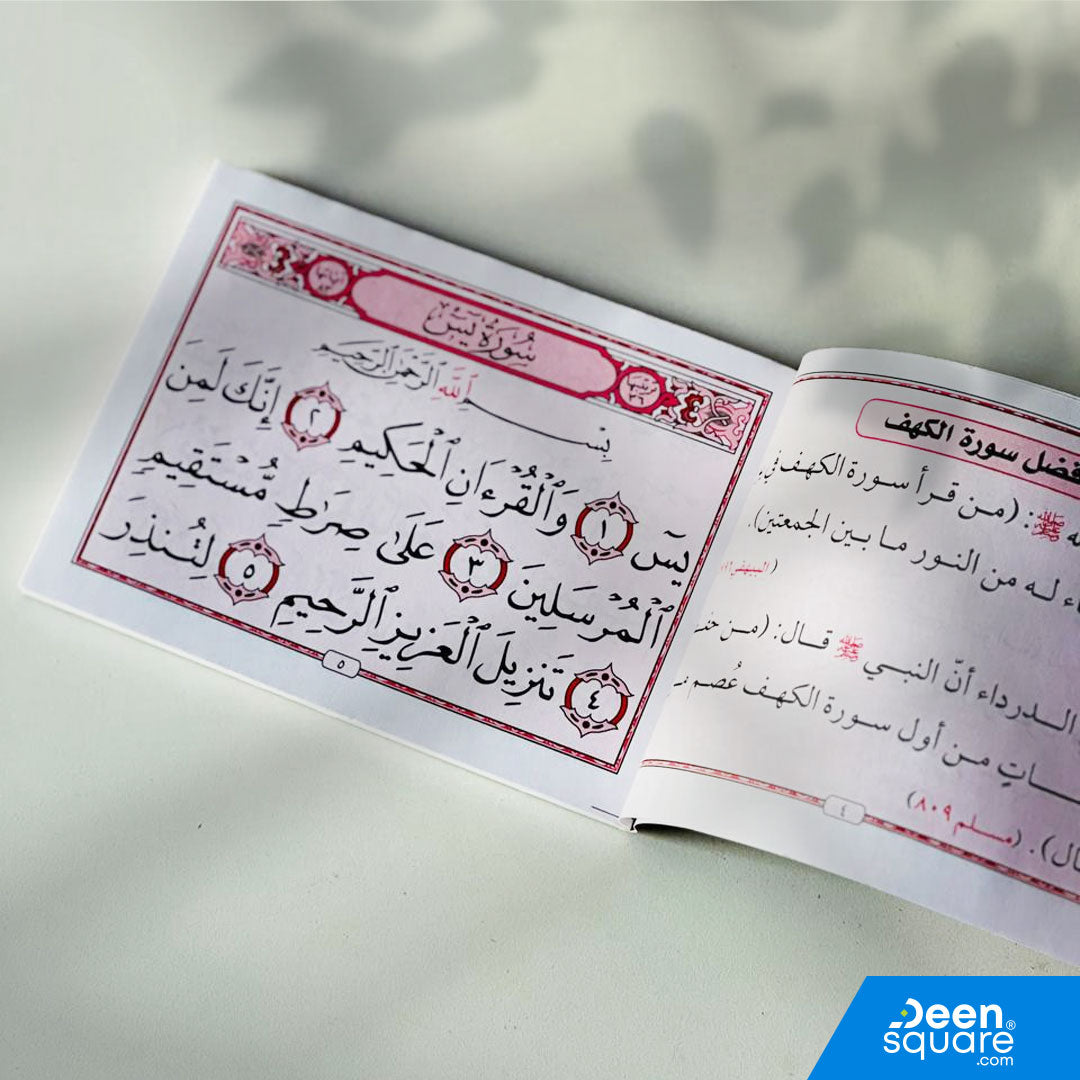 فضل سورة الكهف
ﷺ: (من قرأ سورة الكهف في
له من النور ما بين الجمعتين).
(البيهقي
الدرداء أنّ النبي ﷺ قال: (من
من أول سورة الكهف عُصم
(مسلم ٨٠٩)
٤
ترتيبها ٣٦ سُورَةُ يسٓ آياتها ٨٣
بِسْمِ ٱللَّهِ ٱلرَّحْمَٰنِ ٱلرَّحِيمِ
يسٓ ١ وَٱلْقُرْءَانِ ٱلْحَكِيمِ ٢ إِنَّكَ لَمِنَ
ٱلْمُرْسَلِينَ ٣ عَلَىٰ صِرَٰطٍ مُّسْتَقِيمٍ
٤ تَنزِيلَ ٱلْعَزِيزِ ٱلرَّحِيمِ ٥ لِتُنذِرَ
٥
Deen®
square
.com